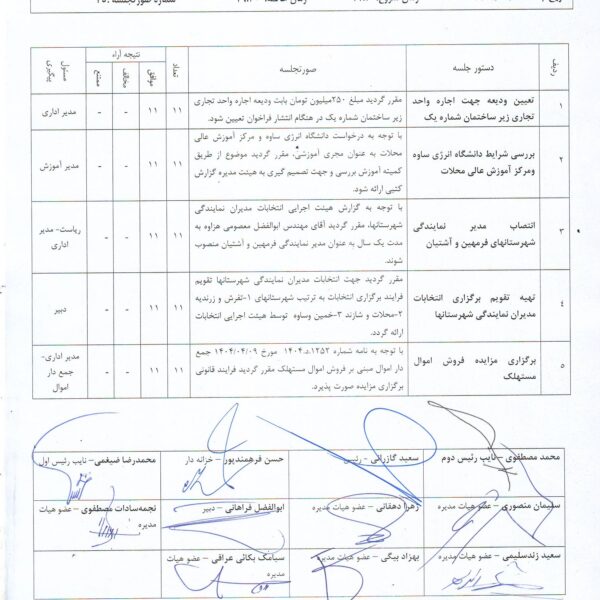 شماره صورتجلسه :
ردیف
دستور جلسه
صورتجلسه
تعداد
نتیجه آراء
موافق
مخالف
ممتنع
مسئول پیگیری
۱
تعیین ودیعه جهت اجاره واحد
تجاری زیر ساختمان شماره یک
مقرر گردید مبلغ ۲۵۰میلیون تومان بابت ودیعه اجاره واحد تجاری
زیر ساختمان شماره یک در هنگام انتشار فراخوان تعیین شود.
۱۱
۱۱
-
-
مدیر اداری
۲
بررسی شرایط دانشگاه انرژی ساوه
ومرکز آموزش عالی محلات
با توجه به درخواست دانشگاه انرژی ساوه و مرکز آموزش عالی
محلات به عنوان مجری آموزشی، مقرر گردید موضوع از طریق
کمیته آموزش بررسی و جهت تصمیم گیری به هیئت مدیره گزارش
کتبی ارائه شود.
۱۱
۱۱
-
-
مدیر آموزش
۳
انتصاب مدیر نمایندگی
شهرستانهای فرمهین و آشتیان
با توجه به گزارش هیئت اجرایی انتخابات مدیران نمایندگی
شهرستانها، مقرر گردید آقای مهندس ابوالفضل معصومی هزاوه به
مدت یک سال به عنوان مدیر نمایندگی فرمهین و آشتیان منصوب
شوند.
۱۱
۱۱
-
-
ریاست- مدیر
اداری
۴
تهیه تقویم برگزاری انتخابات
مدیران نمایندگی شهرستانها
مقرر گردید جهت انتخابات مدیران نمایندگی شهرستانها تقویم
فرایند برگزاری انتخابات به ترتیب شهرستانهای ۱-تفرش و زرندیه
۲-محلات و شازند ۳-خمین وساوه توسط هیئت اجرایی انتخابات
ارائه گردد.
۱۱
۱۱
-
-
دبیر
۵
برگزاری مزایده فروش اموال
مستهلک
با توجه به نامه شماره ۱۲۵۳.د.۱۴۰۴ مورخ ۱۴۰۴/۰۴/۰۹ جمع
دار اموال مبنی بر فروش اموال مستهلک مقرر گردید فرایند قانونی
برگزاری مزایده صورت پذیرد.
۱۱
۱۱
-
-
مدیر اداری-
جمع دار
اموال
محمد مصطفوی – نایب رئیس دوم
سعید گازرانی – رئیس
حسن فرهمندپور – خزانه دار
محمدرضا ضیغمی – نایب رئیس اول
سلیمان منصوری – عضو هیات مدیره
زهرا دهقانی – عضو هیات مدیره
ابوالفضل فراهانی – دبیر
نجمه‌سادات مصطفوی – عضو هیات
مدیره
سعید زندسلیمی – عضو هیات مدیره
بهزاد بیگی – عضو هیات مدیره
سیامک یکائی عراقی – عضو هیات
مدیره